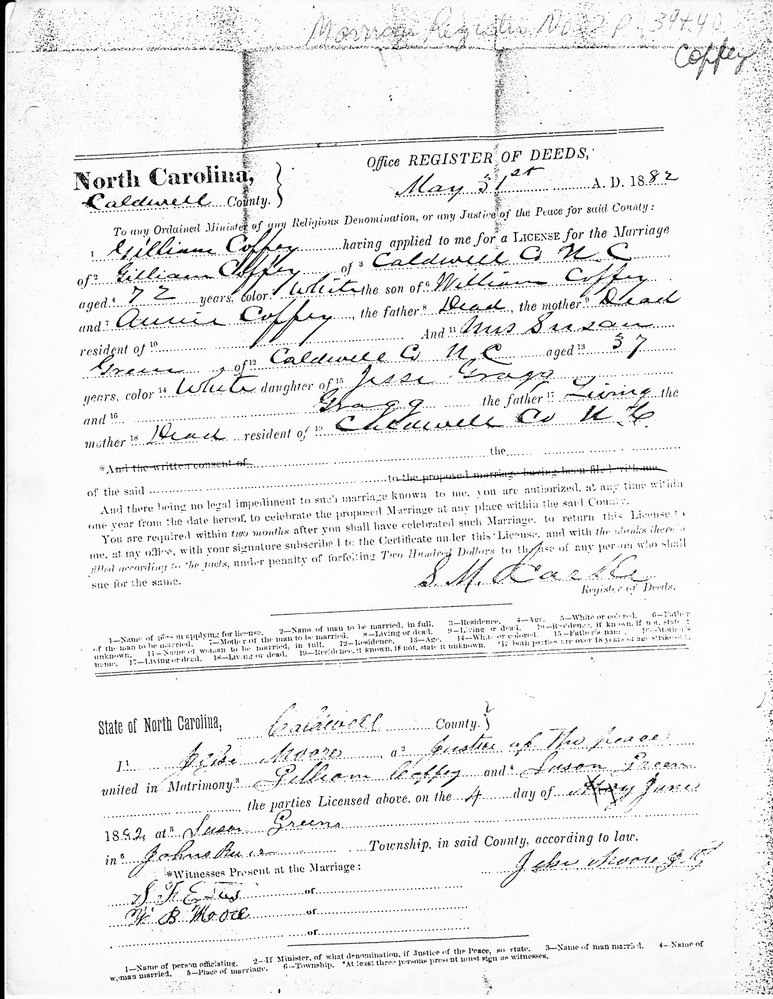 Marriage Register No. 2 P. 39 + 40
Coffey
North Carolina,
Office REGISTER OF DEEDS,
Caldwell County.
May 31st A. D. 1882
To any Ordained Minister of any Religious Denomination, or any Justice of the Peace for said County:
1 Gilliam Coffey having applied to me for a LICENSE for the Marriage
of 2 Gilliam Coffey of 3 Caldwell Co N C
aged 4 72 years, color 5 White the son of 6 William Coffey
and 7 Annie Coffey, the father 8 Dead, the mother 9 Dead
resident of 10 And 11 Mrs Susan
Green of 12 Caldwell Co N C aged 13 37
years, color 14 White daughter of 15 Jesse Gragg
and 16 Gragg the father 17 Living the
mother 18 Dead resident of 19 Caldwell Co N C
*And the written consent of the
of the said to the proposed marriage having been filed with me
And there being no legal impediment to such marriage known to me, you are authorized, at any time within
one year from the date hereof, to celebrate the proposed Marriage at any place within the said County.
You are required within two months after you shall have celebrated such Marriage, to return this License to
me, at my office, with your signature subscribed to the Certificate under this License, and with the blanks therein
filled according to the facts, under penalty of forfeiting Two Hundred Dollars to the use of any person who shall
sue for the same.
S. M.
Register of Deeds.
1—Name of person applying for license. 2—Name of man to be married, in full. 3—Residence. 4—Age. 5—White or colored. 6—Father
of the man to be married. 7—Mother of the man to be married. 8—Living or dead. 9—Living or dead. 10—Residence, if known, if not, state
unknown. 11—Name of woman to be married, in full. 12—Residence. 13—Age. 14—White or colored. 15—Father's name. 16—Mother's
name. 17—Living or dead. 18—Living or dead. 19—Residence, if known, if not, state unknown. *If both parties are over 18 years of age strike
State of North Carolina, Caldwell County.
I 1 Moore a 2 Justice of the peace
united in Matrimony 3 Gilliam Coffey and 4 Susan Green
the parties Licensed above, on the 4 day of June
1882, at 5 Susan Greens
in 6 Johns River Township, in said County, according to law.
*Witnesses Present at the Marriage:
Moore J. P.
S. F. Estes of
B Moore of
of
1—Name of person officiating. 2—If Minister, of what denomination, if Justice of the Peace, so state. 3—Name of man married. 4—Name of
woman married. 5—Place of marriage. 6—Township. *At least three persons present must sign as witnesses.